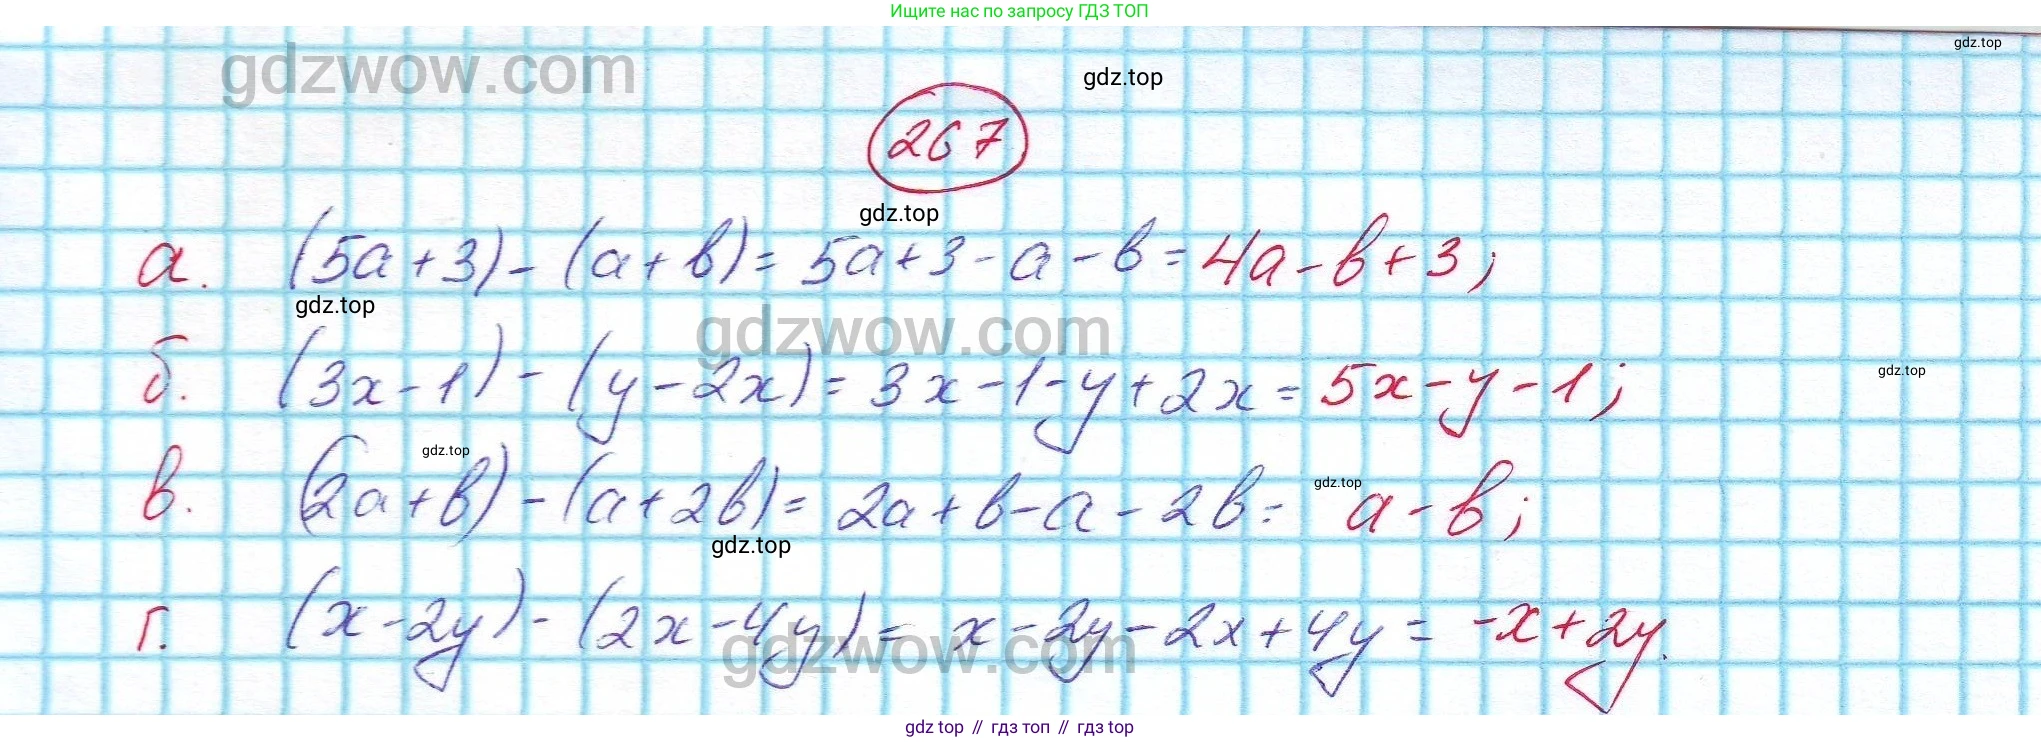 Ищите нас по запросу ГДЗ ТОП
gdz.top
gdzwow.com
gdz.top
267
gdz.top
а. (5a+3)-(a+b)=5a+3-a-b=4a-b+3;
gdz.top
gdzwow.com
б. (3x-1)-(y-2x)=3x-1-y+2x=5x-y-1;
gdz.top
gdz.top
в. (2a+b)-(a+2b)=2a+b-a-2b=a-b;
gdz.top
gdz.top
г. (x-2y)-(2x-4y)=x-2y-2x+4y=-x+2y.
gdzwow.com
gdz top // гдз топ // gdz top